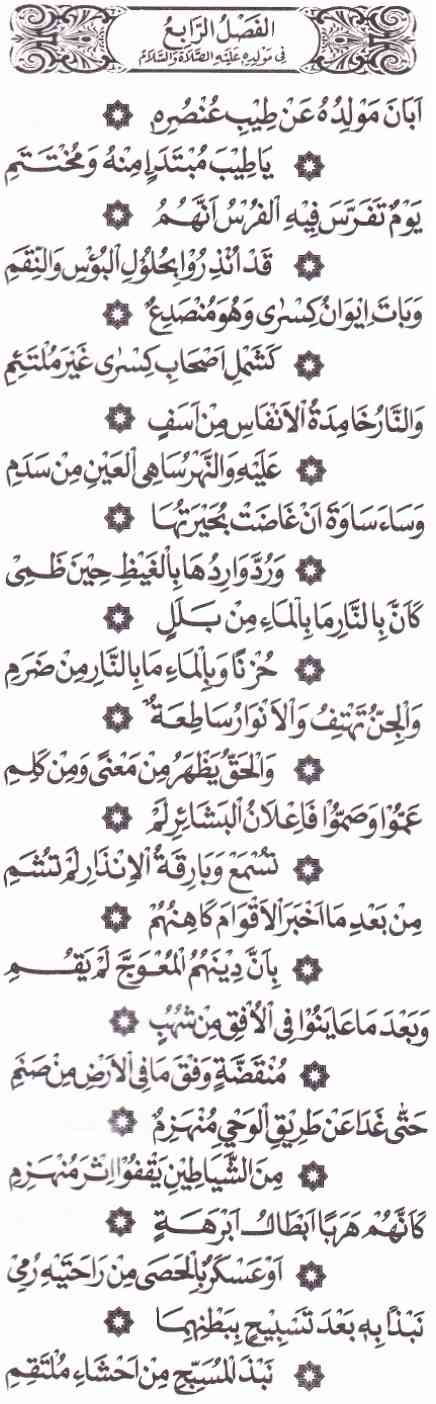 الفَصْلُ الرَّابِعُ
فِي مَوْلِدِهِ عَلَيْهِ الصَّلَاةُ وَالسَّلَامُ
اَبَانَ مَوْلِدُهُ عَنْ طِيبِ عُنْصُرِهِ
يَا طِيبَ مُبْتَدَإٍ مِنْهُ وَمُخْتَتَمِ
يَوْمٌ تَفَرَّسَ فِيهِ الْفُرْسُ اَنَّهُمُ
قَدْ اُنْذِرُوا بِحُلُولِ الْبُؤْسِ وَالنِّقَمِ
وَبَاتَ اِيْوَانُ كِسْرٰى وَهُوَ مُنْصَدِعٌ
كَشَمْلِ اَصْحَابِ كِسْرٰى غَيْرَ مُلْتَئِمِ
وَالنَّارُ خَامِدَةُ الْاَنْفَاسِ مِنْ اَسَفٍ
عَلَيْهِ وَالنَّهْرُ سَاهِى الْعَيْنِ مِنْ سَدَمِ
وَسَاءَ سَاوَةَ اَنْ غَاضَتْ بُحَيْرَتُهَا
وَرُدَّ وَارِدُهَا بِالْغَيْظِ حِيْنَ ظَمِىْ
كَاَنَّ بِالنَّارِ مَا بِالْمَاءِ مِنْ بَلَلٍ
حُزْنًا وَبِالْمَاءِ مَا بِالنَّارِ مِنْ ضَرَمِ
وَالْجِنُّ تَهْتِفُ وَالْاَنْوَارُ سَاطِعَةٌ
وَالْحَقُّ يَظْهَرُ مِنْ مَعْنًى وَمِنْ كَلِمِ
عَمُوْا وَصَمُّوْا فَاِعْلَانُ الْبَشَائِرِ لَمْ
تُسْمَعْ وَبَارِقَةُ الْاِنْذَارِ لَمْ تُشَمِ
مِنْ بَعْدِ مَا اَخْبَرَ الْاَقْوَامَ كَاهِنُهُمْ
بِاَنَّ دِيْنَهُمُ الْمُعْوَجَّ لَمْ يَقُمِ
وَبَعْدَ مَا عَايَنُوْا فِى الْاُفْقِ مِنْ شُهُبٍ
مُنْقَضَّةٍ وَفْقَ مَا فِى الْاَرْضِ مِنْ صَنَمِ
حَتّٰى غَدَا عَنْ طَرِيْقِ الْوَحْيِ مُنْهَزِمٌ
مِنَ الشَّيَاطِيْنِ يَقْفُوْا اِثْرَ مُنْهَزِمِ
كَاَنَّهُمْ هَرَبًا اَبْطَالُ اَبْرَهَةٍ
اَوْ عَسْكَرٌ بِالْحَصَى مِنْ رَاحَتَيْهِ رُمِيْ
نَبْذًا بِهِ بَعْدَ تَسْبِيْحٍ بِبَطْنِهِمَا
نَبْذَ الْمُسَبِّحِ مِنْ اَحْشَاءِ مُلْتَقِمِ